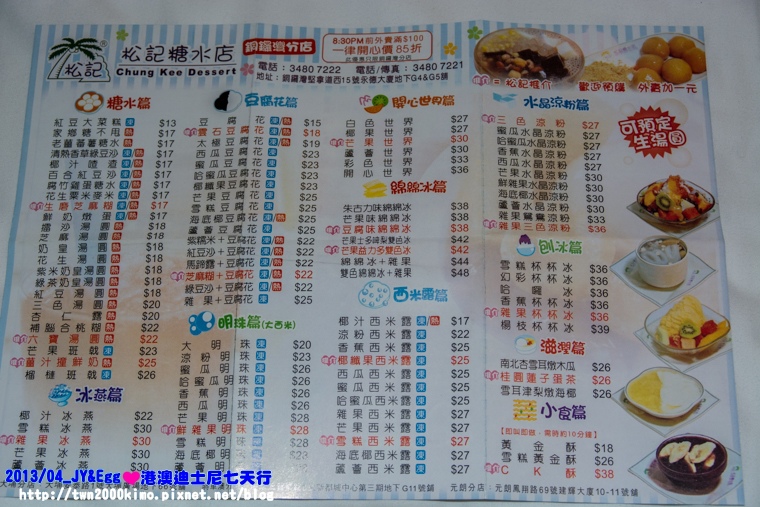 松記
松記糖水店
Chung Kee Dessert
銅鑼灣分店
8:30PM前外賣滿$100
一律開心價85折
電話：3480 7222 電話/傳真：3480 7221
地址：銅鑼灣堅拿道西15號永德大廈地下G4&G5舖
=松記推介 歡迎預購 外賣加一元
可預定生湯圓
糖水篇
紅豆大菜糕 凍 $13
家鄉糖不甩 熱 $17
老薑蕃薯糖水 熱 $17
清熱香草綠豆沙 凍/熱 $17
椰汁喳咋 凍/熱 $17
百合紅豆沙 凍/熱 $17
腐竹雞蛋糖水 凍/熱 $17
花生粟米麥米 凍/熱 $17
生磨芝麻糊 凍/熱 $17
鮮奶燉蛋 凍/熱 $17
擂沙湯圓 熱 $18
芝麻湯圓 熱 $18
奶黃湯圓 熱 $18
紫米皇湯圓 熱 $18
茶奶皇湯圓 熱 $18
紅豆湯圓 熱 $18
三色湯圓 熱 $20
杏仁露 熱 $20
補腦合桃糊 熱 $22
六寶湯圓 熱 $22
芒果班戟 凍 $23
薑汁撞鮮奶 熱 $25
榴槤班戟 凍 $26
冰燕篇
椰汁冰燕 $22
芒果冰燕 $30
雜果冰燕 $30
豆腐花篇
豆腐花 凍/熱 $15
雲石豆腐花 凍/熱 $18
太極豆腐花 凍/熱 $19
西瓜豆腐花 凍 $23
蜜瓜豆腐花 凍 $23
哈蜜瓜豆腐花 凍 $23
椰纖果豆腐花 凍 $23
芒果豆腐花 凍 $25
雪糕豆腐花 凍 $25
海底椰豆腐花 凍 $25
蘆薈豆腐花 凍 $25
紫糯米+豆腐花 凍/熱 $22
紅豆沙+豆腐花 凍/熱 $22
馬蹄露+豆腐花 凍/熱 $22
芝麻糊+豆腐花 凍/熱 $22
綠豆沙+豆腐花 凍/熱 $22
雜果+豆腐花 凍 $25
明珠篇(大西米)
大明珠 凍 $20
涼粉明珠 凍 $23
蜜瓜明珠 凍 $25
哈蜜瓜明珠 凍 $25
香蕉明珠 凍 $25
西瓜明珠 凍 $25
芒果明珠 凍 $28
鮮雜果明珠 凍 $28
雪糕明珠 凍 $28
海底椰明珠 凍 $28
蘆薈明珠 凍 $28
開心世界篇
白色世界 $27
椰果世界 $27
芒果世界 $30
蘆薈世界 $30
彩色世界 $33
開心世界 $36
綿綿冰篇
朱古力味綿綿冰 $38
芒果味綿綿冰 $38
豆腐味綿綿冰 $38
芒果士多啤梨雙色冰 $42
芒果益力多雙色冰 $42
綿綿冰+雜果 $44
雙色綿綿冰+雜果 $48
西米露篇
椰汁西米露 凍/熱 $17
涼粉西米露 凍 $22
蜜瓜西米露 凍 $25
椰纖果西米露 凍 $25
哈蜜瓜西米露 凍 $25
香蕉西米露 凍 $25
西瓜西米露 凍 $25
雜果西米露 凍 $27
芒果西米露 凍 $27
雪糕西米露 凍 $27
海底椰西米露 凍 $27
蘆薈西米露 凍 $27
水晶涼粉篇
三色涼粉 $27
蜜瓜水晶涼粉 $27
哈蜜瓜水晶涼粉 $27
西瓜水晶涼粉 $27
香蕉水晶涼粉 $27
芒果水晶涼粉 $30
鮮雜果水晶涼粉 $30
蘆薈水晶涼粉 $30
雜果鴛鴦涼粉 $30
雜果三色涼粉 $30
刨冰篇
雪糕杯杯冰 $36
幻彩杯杯冰 $36
哈囉冰 $36
香蕉杯杯冰 $36
雜果杯杯冰 $36
楊枝杯杯冰 $39
滋潤篇
南北杏雪耳燉木瓜 $26
桂圓蓮子蛋茶 $26
雪耳津梨燉海椰 $26
小食篇
【即叫即做，需時約10分鐘】
黃金酥 $18
雪糕黃金酥 $26
CK酥 $38
中心第三期地下G11號舖
元朗分店：元朗鳳翔路69號建輝大廈10-11號舖
2013/04_JY&Egg❤港澳迪士尼七天行
http://twn2000kimo.pixnet.net/blog